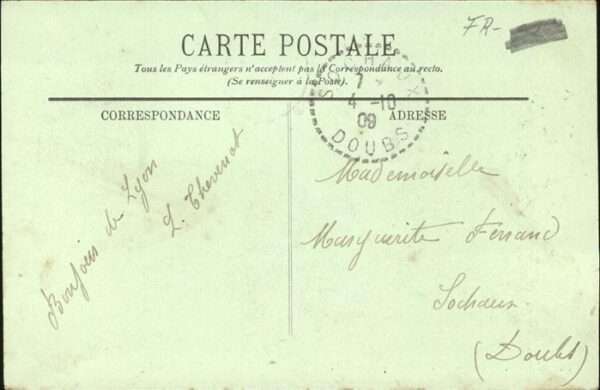 FR-
CARTE POSTALE
Tous les Pays étrangers n'acceptent pas la Correspondance au recto.
(Se renseigner à la Poste).
7
4 -10
09
DOUBS
CORRESPONDANCE
ADRESSE
Bonjour de Lyon
L. Thevenot
Mademoiselle
Marguerite Ferrand
Sochaux
(Doubs)